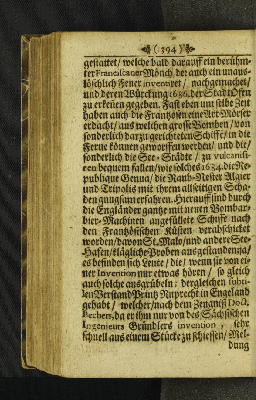 (394)
gestattet/ welche bald darauff ein berühm-
ter Franciscaner Mönch/ der auch ein unaus-
löschlich Feuer inventiret/ nachgemachet/
und deren Würckung 1686. der Stadt Ofen
zu erkeñen gegeben. Fast eben um selbe Zeit
haben auch die Frantzosen eine Art Mörser
erdacht/ aus welchen grosse Bomben/ von
sonderlich darzu gerichteten Schiffe/ in die
Ferne können geworffen werden/ und die/
sonderlich die See-Städte/ zu
en bequem fallen/ wie solches 1684. die Re-
publique Genua/ die Raub-Nester Algier
und Tripolis mit ihrem allseitigen Scha-
den gungsam erfahren. Hierauff sind durch
die Engländer gantz mit neuen Bombar-
dier-Machinen angefüllete Schiffe nach
den Frantzösischen Küsten verabschicket
worden/ davon St. Malo/ und andere See-
Hafen/ klägliche Proben ausgestanden. Ja/
es befinden sich Leute/ die/ wenn sie von ei-
ner Invention nur etwas hören/ so gleich
auch solche ausgrübeln: dergleichen subti-
len Verstand Printz Ruprecht in Engeland
gehabt/ welcher/ nach dem Zeugniß Doct.
Bechers, da er ihm nur von des Sächsischen
Ingenieurs Gründlers invention, sehr
schnell aus einem Stücke zu schiessen/ Mel-
dung